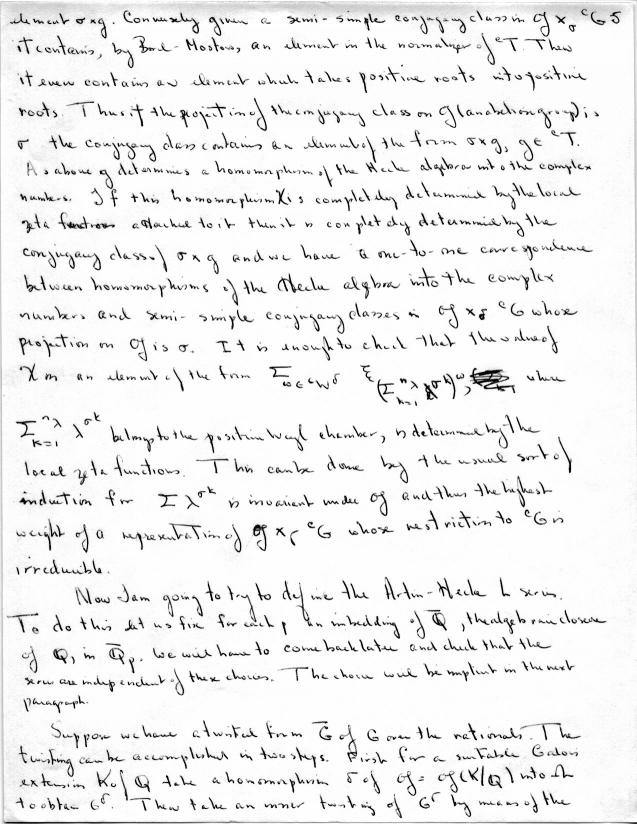 element σ×g. Conversely given a semi-simple conjugacy class in 𝔤 ×_σ ᶜG 5
it contains, by Borel-Mostow, an element in the normalizer of ᶜT. Then
it even contains an element which takes positive roots into positive
roots. Thus if the projection of the conjugacy class on 𝔤 (an abelian group) is
σ the conjugacy class contains an element of the form σ×g, g∈ ᶜT.
As above g determines a homomorphism of the Hecke algebra into the complex
numbers. If this homomorphism χ is completely determined by the local
zeta functions attached to it then it is completely determined by the
conjugacy class of σ×g and we have a one-to-one correspondence
between homomorphisms of the Hecke algebra into the complex
numbers and semi-simple conjugacy classes in 𝔤 ×_δ ᶜG whose
projection on 𝔤 is σ. It is enough to check that the value of
χ on an element of the form Σ_{ω∈ᶜW^σ} ξ_{(Σ_{k=1}^{n_λ} λ^{σ^k})^ω}, where
Σ_{k=1}^{n_λ} λ^{σ^k} belongs to the positive Weyl chamber, is determined by the
local zeta functions. This can be done by the usual sort of
induction for Σ λ^{σ^k} is invariant under 𝔤 and thus the highest
weight of a representation of 𝔤 ×_δ ᶜG whose restriction to ᶜG is
irreducible.
Now I am going to try to define the Artin-Hecke L series.
To do this let us fix for each p an imbedding of Q̄, the algebraic closure
of Q, in Q̄_p. We will have to come back later and check that the
series are independent of these choices. The choice will be implicit in the next
paragraph.
Suppose we have a twisted form G̃ of G over the rationals. The
twisting can be accomplished in two steps. First for a suitable Galois
extension K of Q take a homomorphism δ of 𝔤 = 𝔤(K/Q) into Ω
to obtain G^δ. Then take an inner twisting of G^δ by means of the